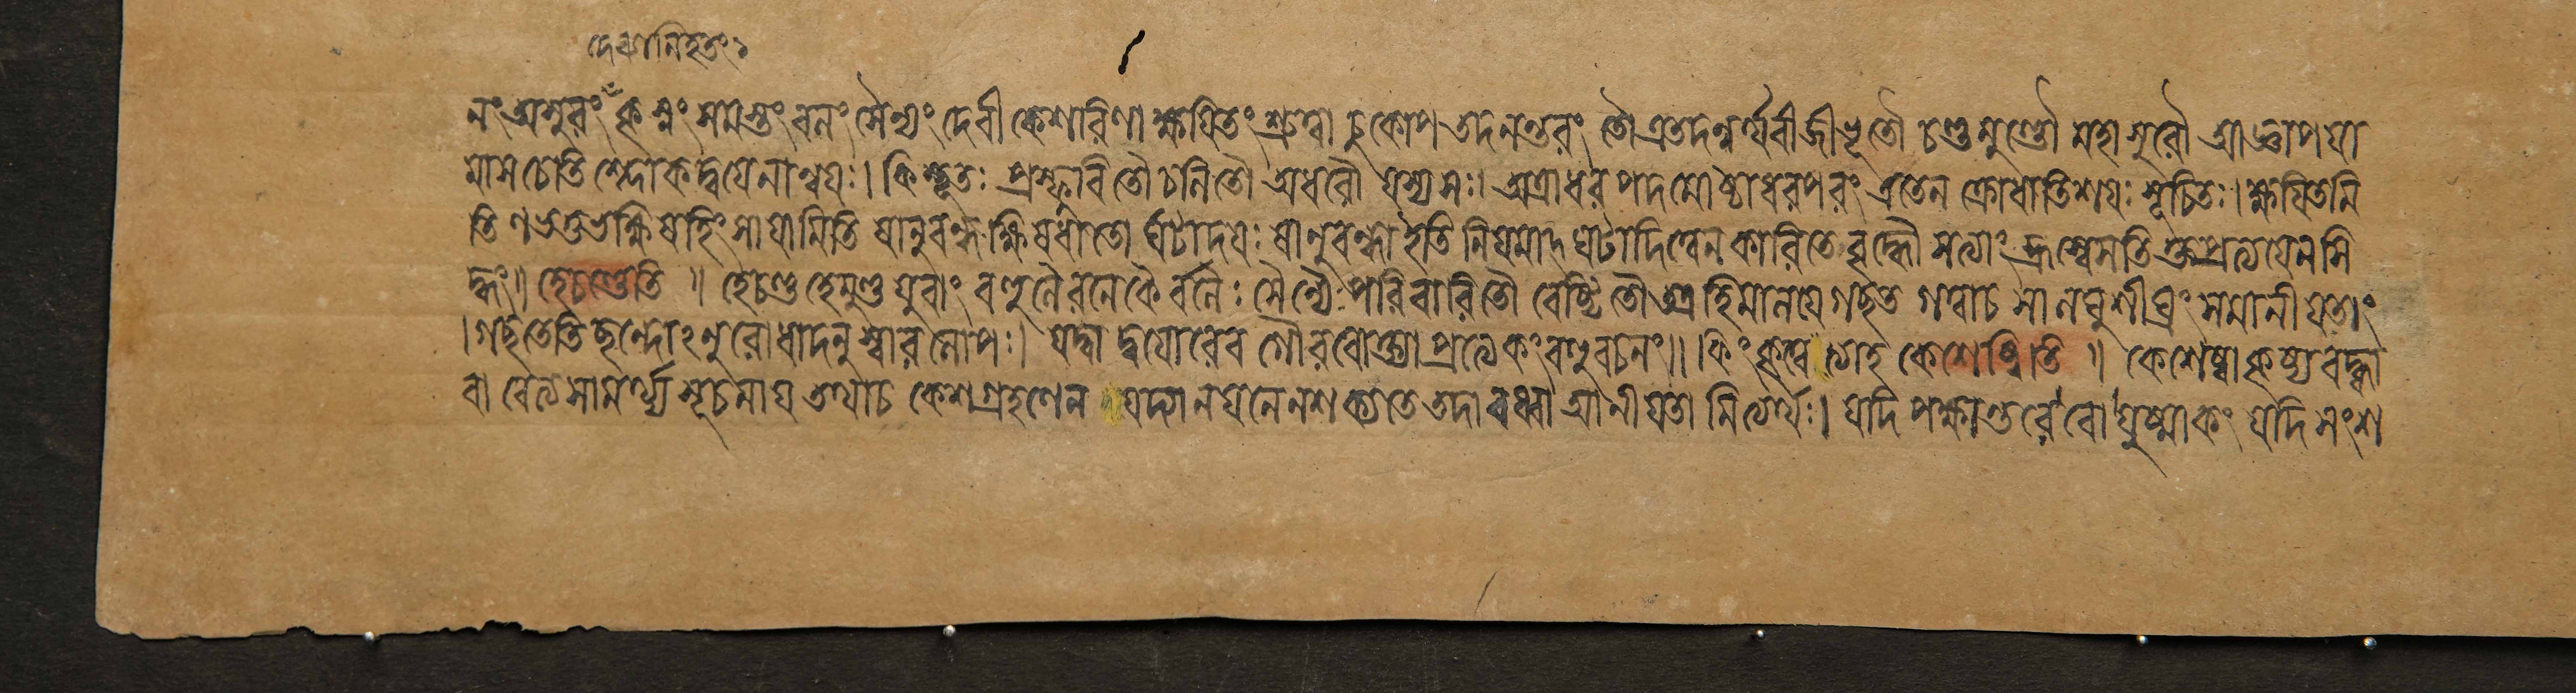 দেব্যানিহতং১
লং অসুরং কৃৎস্নং সমস্তং বলং সৈন্যং দেবী কেশরিণা ক্ষয়িতং শ্রুত্বা চুকোপ তদনন্তরং তৌ চণ্ডমুণ্ডৌ মহাসুরৌ আজ্ঞাপয়া
মাস চেতি শ্লোকদ্বয়েনান্বয়ঃ। কিম্ভূতঃ প্রস্ফুরিতৌ চলিতৌ অধরৌ যস্য সঃ। অত্রাধরপদমোষ্ঠাধরপরং এতেন ক্রোধাতিশয়ঃ সূচিতঃ। ক্ষয়িতমি
তি ষহিংসায়ামিতি ষানুবন্ধ ঘটাদয়ঃ ষানুবন্ধা ইতি নিয়মাদ্ ঘটাদিত্বেন কারিতে বৃদ্ধৌ সত্যাং হ্রস্বে সতি ক্তপ্রত্যয়েন সি
দ্ধং॥ হেচণ্ডেতি ॥ হেচণ্ড হেমুণ্ড যুবাং বহুলৈরনেকৈর্বলৈঃ সৈন্যৈঃ পরিবারিতৌ বেষ্টিতৌ গচ্ছত গত্বা চ সা লঘু শীঘ্রং সমানীয়তাং
। গচ্ছতেতি ছন্দোঽনুরোধাদনুস্বারলোপঃ। যদ্বা দ্বয়োরেব গৌরবোক্ত্যা প্রত্যেকং বহুবচনং॥ কিং কৃত্বেত্যাহ কেশেষ্বিতি ॥ কেশেষ্বাকৃষ্য বদ্ধ্বা
বা সামর্থ্যসূচনায় তথাচ কেশগ্রহণেন যদ্যানয়নেন শক্যতে তদা বধ্বা আনীয়তামিত্যর্থঃ। যদি পক্ষান্তরে বো যুষ্মাকং যদি সংশ